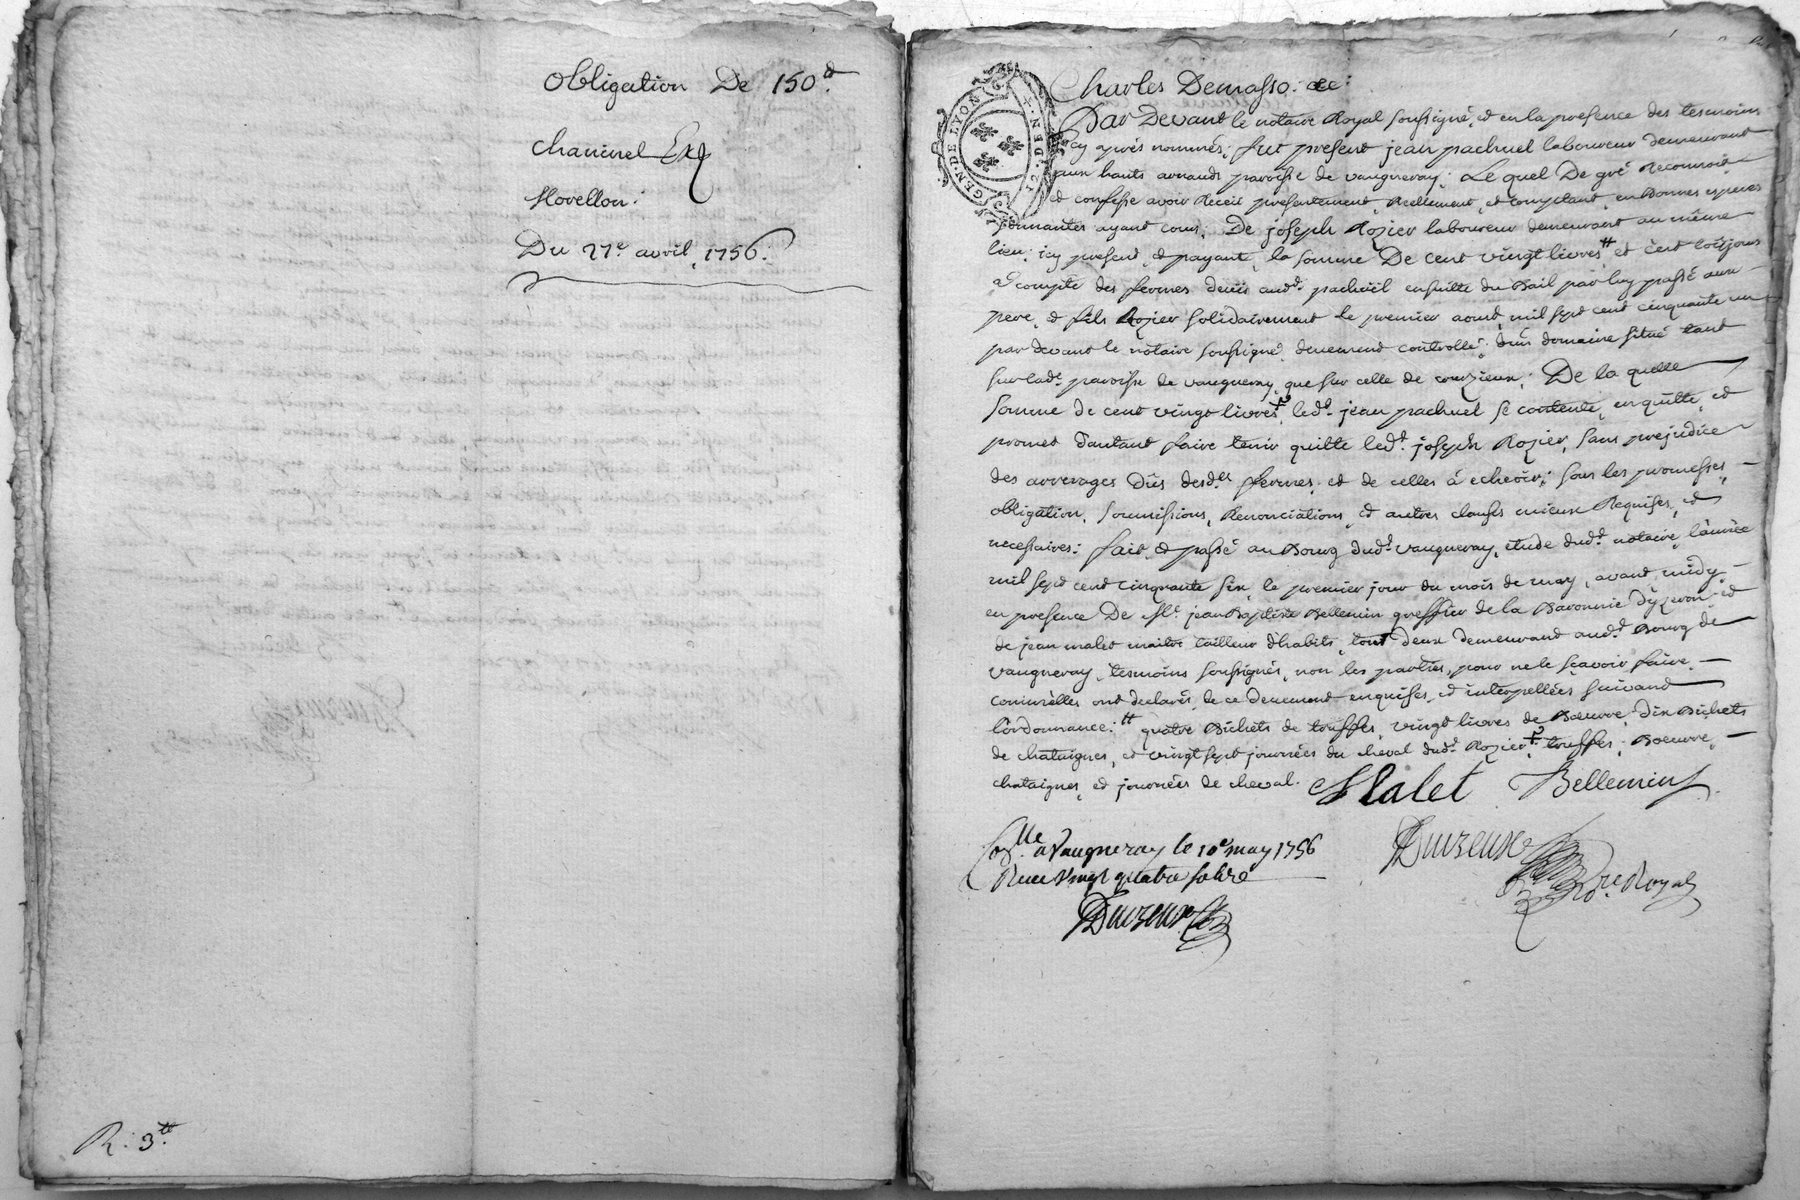 Obligation De 150tt.
Chavinel
Morellon:
Du 27e. avril, 1756.
R: 3tt.
GEN. DE LYON
Charles Demasso: &c:
Par Devant le notaire Royal soussigné, et en la presence des tesmoins
cy aprés nommés; fut present jean pachuel laboureur demeurant
aux hauts arnauds paroisse de vaugneray; Le quel De gré Reconnoit
et confesse avoir Receu presentement, Reellement, et comptant, en Bonnes especes
sonnantes ayant cour; De joseph Rozier laboureur demeurant au même
lieu; icy present, et payant, la somme De cent vingt livres tt et c'est toûjours
a compte des fermes deües aud. pachuel ensuitte du Bail par luy passé aux
pere, et fils Rozier solidairement le premier aoust mil sept cent cinquante un
par devant le notaire soussigné, deuement controllé; d'un domaine situé tant
sur lade. paroisse de vaugneray, que sur celle de courzieux; De la quelle
somme de cent vingt livres, led. jean pachuel se contente, en quitte, et
promet d'autant faire tenir quitte led. joseph Rozier, sans prejudice
des arrerages Dûs desdes. fermes, et de celles à echeoir; sous les promesses,
obligation, soumissions, Renonciations, et autres clauses mieux Requises, et
necessaires; fait, et passé au Bourg dud. vaugneray, etude dud. notaire, l'année
mil sept cent cinquante six, le premier jour du mois de may, avant midy,
en presence De Me. jean Baptiste Bellemin greffier de la Baronnie d'yzeron, et
de jean malet maitre tailleur d'habits, tous deux demeurant aud. Bourg de
vaugneray, tesmoins soussignés, non les parties, pour ne le sçavoir faire,
comm'elles ont declaré, de ce deuement enquises, et interpellées suivant
l'ordonnance: tt quatre Bichets de truffes, vingt livres de Bœurre, dix Bichets
de chataignes, et vingt sept journées du cheval dud. Rozier; truffes, Bœurre,
chataignes, et journées de cheval. Malet Bellemin
Collé. a Vaugneray le 10e may 1756
Receu Vingt quatre sols
Duvzeuxe
Nore. Royal